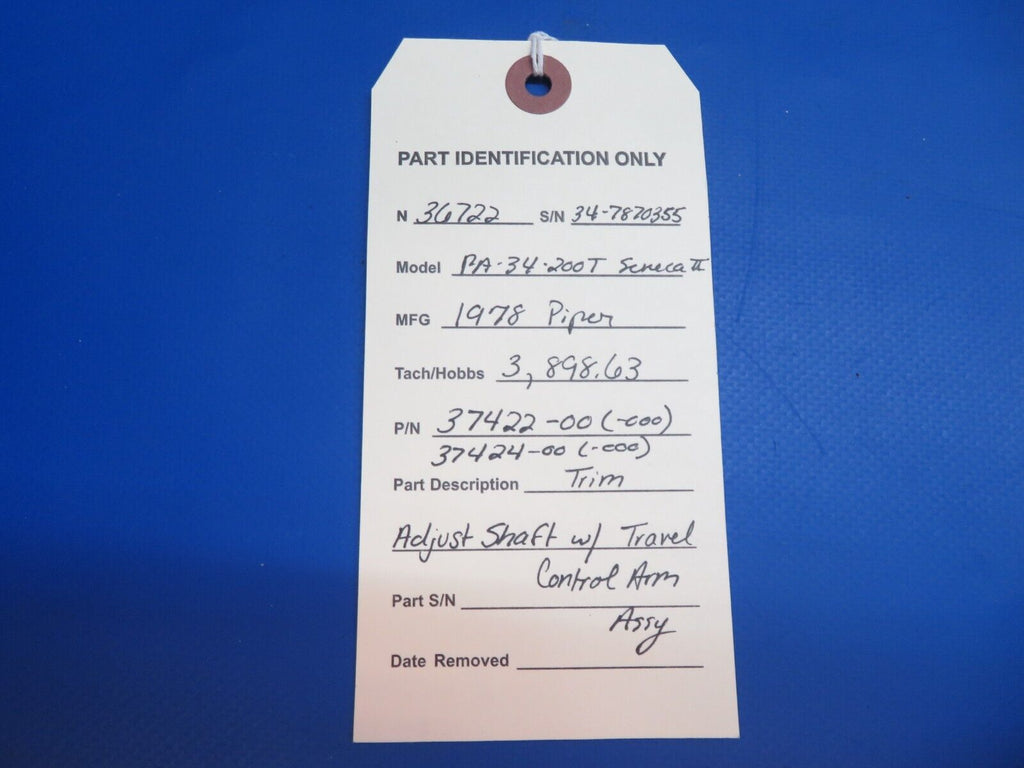 PART IDENTIFICATION ONLY
N 36722 S/N 34-7870355
Model PA-34-200T Seneca II
MFG 1978 Piper
Tach/Hobbs 3,898.63
P/N 37422-00 (-000)
37424-00 (-000)
Part Description Trim
Adjust Shaft w/ Travel
Control Arm
Part S/N
Assy
Date Removed